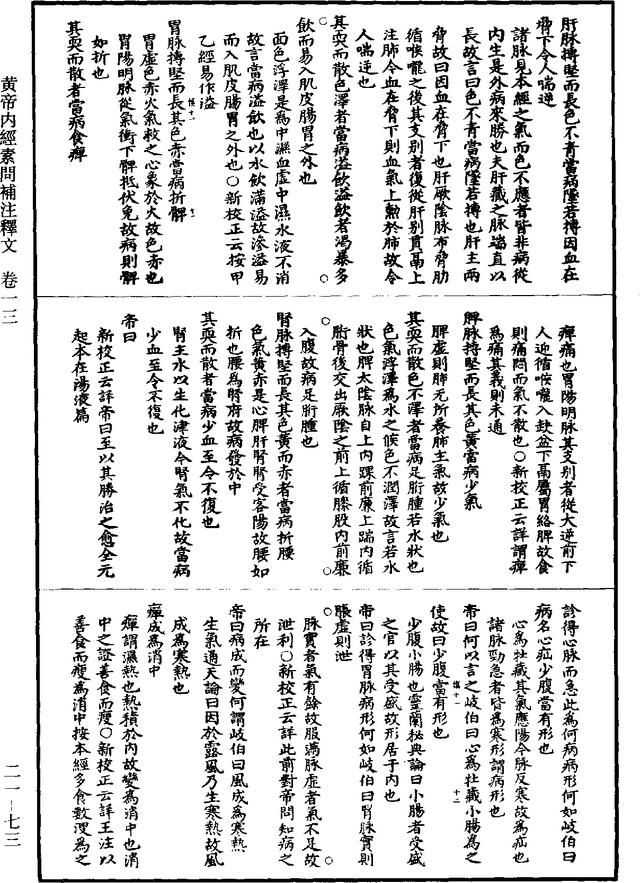 黄帝内經素問補注釋文 卷一三
二一—七三
肝脉搏堅而長色不青當病墜若搏因血在
脅下令人喘逆
諸脉見本經之氣而色不應者皆非病從
内生是外病來勝也夫肝藏之脉端直以
長故言曰色不青當病墜若搏也肝主兩
脅故曰因血在脅下也肝厥陰脉布脅肋
循喉嚨之後其支別者復從肝別貫鬲上
注肺今血在脅下則血氣上勲於肺故令
人喘逆也
其耎而散色澤者當病溢飲溢飲者渴暴多
飲而易入肌皮腸胃之外也
面色浮澤是為中濕血虚中濕水液不消
故言當病溢飲也以水飲滿溢故滲溢易
而入肌皮腸胃之外也○新校正云按甲
乙經易作溢
胃脉搏堅而長其色赤當病折髀
胃虚色赤火氣救之心象於火故色赤也
胃陽明脉從氣衝下髀抵伏兔故病則髀
如折也
其耎而散者當病食痺
痺痛也胃陽明脉其支別者從大迎前下
人迎循喉嚨入缺盆下鬲屬胃絡脾故食
則痛悶而氣不散也○新校正云詳謂痺
為痛其義則未通
脾脉搏堅而長其色黄當病少氣
脾虚則肺无所養肺主氣故少氣也
其耎而散色不澤者當病足胻腫若水狀也
色氣浮澤為水之候色不潤澤故言若水
狀也脾太陰脉自上内踝前廉上踹内循
胻骨後交出厥陰之前上循膝股内前廉
入腹故病足胻腫也
腎脉搏堅而長其色黄而赤者當病折腰
色氣黄赤是心脾肝腎腎受客陽故腰如
折也腰為腎府故病發於中
其耎而散者當病少血至令不復也
腎主水以生化津液今腎氣不化故當病
少血至令不復也
帝曰
新校正云詳帝曰至以其勝治之愈全元
起本在湯液篇
診得心脉而急此為何病病形何如岐伯曰
病名心疝少腹當有形也
心為牡藏其氣應陽今脉反寒故為疝也
諸脉勁急者皆為寒形謂病形也
帝曰何以言之岐伯曰心為牡藏小腸為之
使故曰少腹當有形也
少腹小腸也靈蘭秘典論曰小腸者受盛
之官以其受盛故形居于内也
帝曰診得胃脉病形何如岐伯曰胃脉實則
脹虚則泄
脉實者氣有餘故脹滿脉虚者氣不足故
泄利○新校正云詳此前對帝問知病之
所在
帝曰病成而變何謂岐伯曰風成為寒熱
生氣通天論曰因於露風乃生寒熱故風
成為寒熱也
癉成為消中
癉謂濕熱也熱積於内故變為消中也消
中之證善食而瘦○新校正云詳王注以
善食而瘦為消中按本經多食數溲為之